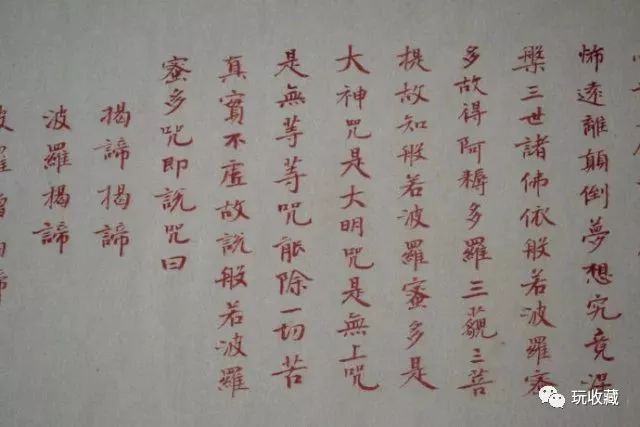 怖遠離顛倒夢想究竟涅
槃三世諸佛依般若波羅蜜
多故得阿耨多羅三藐三菩
提故知般若波羅蜜多是
大神咒是大明咒是無上咒
是無等等咒能除一切苦
真實不虛故說般若波羅
蜜多咒即說咒曰
揭諦揭諦
波羅揭諦
玩收藏